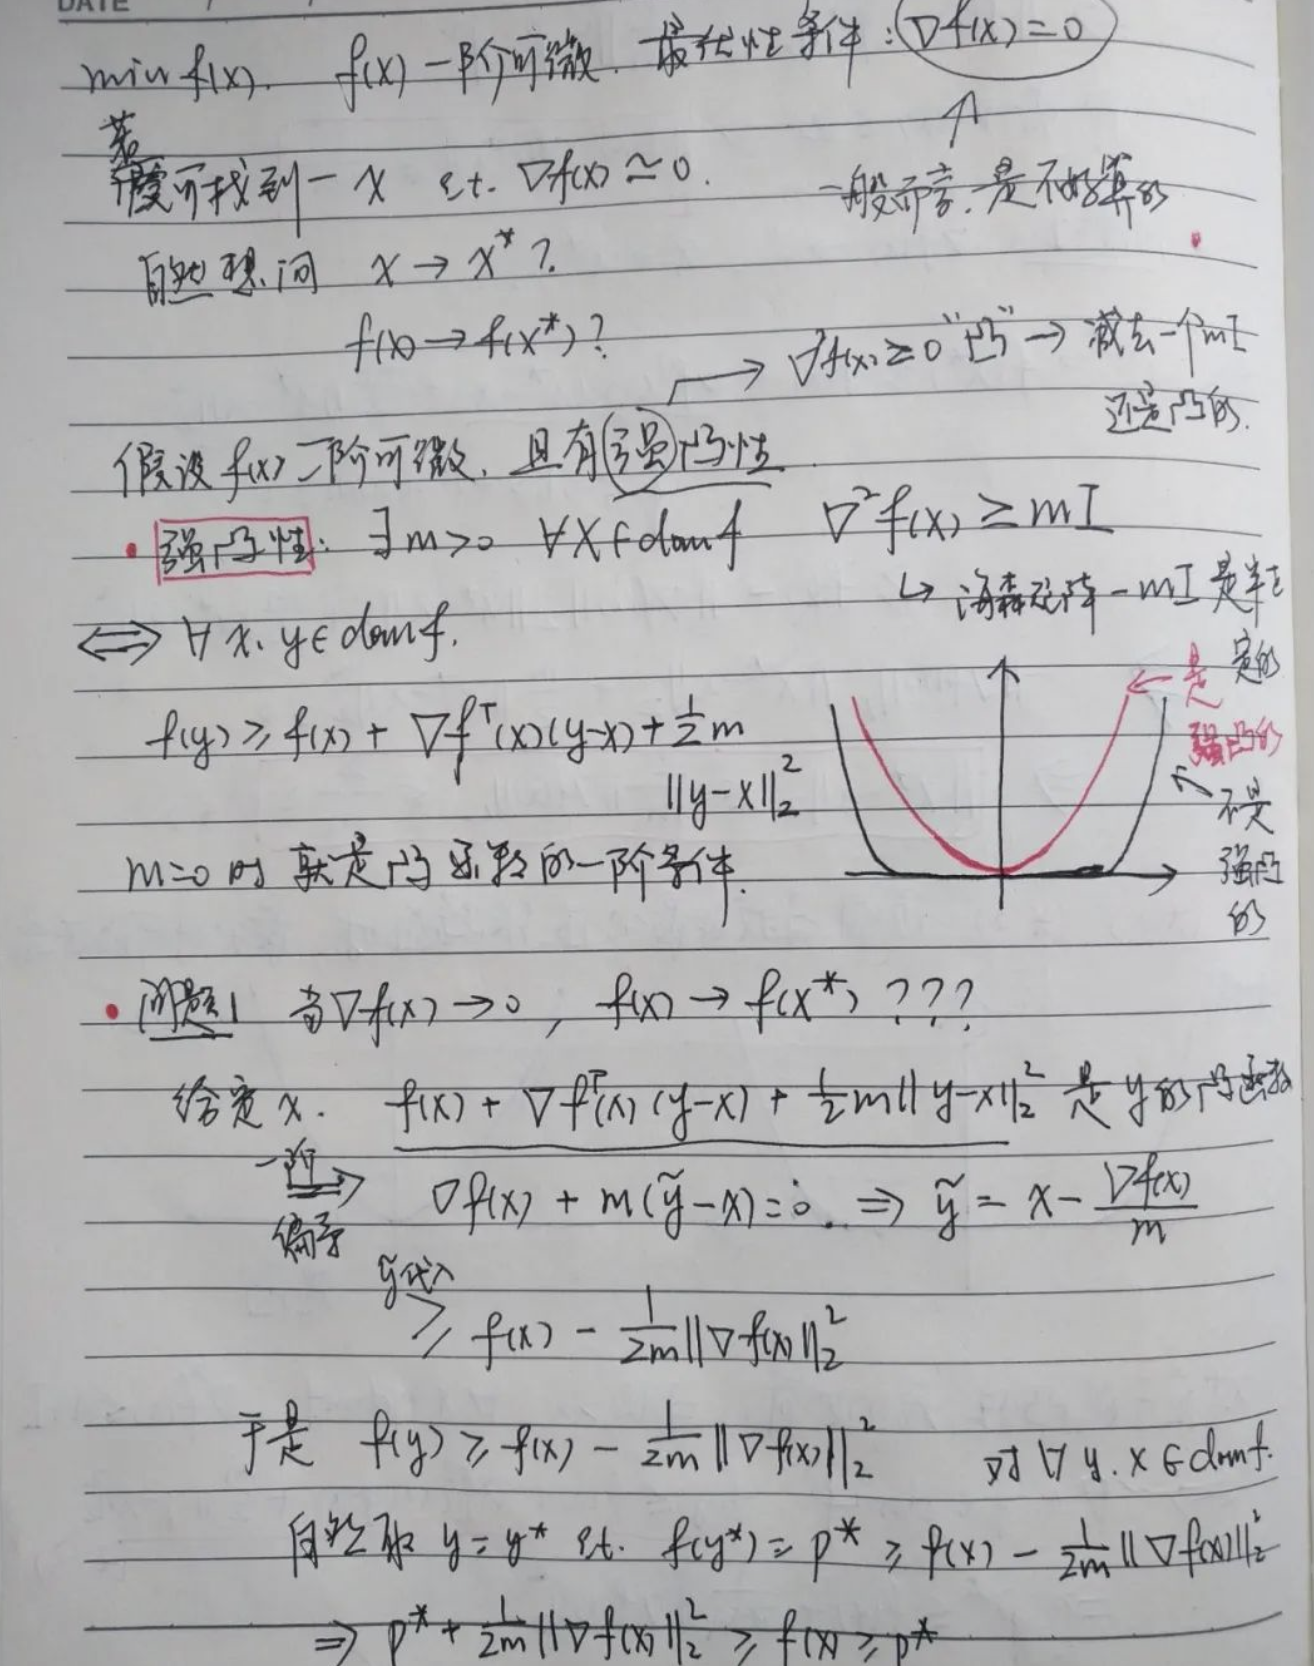 DATE
min f(x). f(x) 一阶可微. 最优性条件: ∇f(x)=0
若
假设可找到一 x s.t. ∇f(x)≃0.
一般而言. 是不好算的
自然想问 x → x* ?
f(x) → f(x*) ?
→ ∇²f(x) ≥ 0 "凸" → 减去一个mI
还是凸的.
假设 f(x) 二阶可微, 且有强凸性
• 强凸性: ∃m>0 ∀x∈domf ∇²f(x) ≥ mI
↳ 海森矩阵-mI是半正
定的
⟺ ∀x, y∈domf.
← 是
强凸的
f(y) ≥ f(x) + ∇fᵀ(x)(y-x) + ½m
‖y-x‖₂²
不是
强凸
的
m=0 时 就是凸函数的一阶条件.
• 问题1 当∇f(x)→0, f(x) → f(x*) ???
给定x. f(x) + ∇fᵀ(x)(y-x) + ½m‖y-x‖₂² 是y的凸函数
一阶
⟹
偏导
∇f(x) + m(ỹ-x)=0. ⇒ ỹ = x - ∇f(x)/m
ỹ代入
≥ f(x) - 1/2m ‖∇f(x)‖₂²
于是 f(y) ≥ f(x) - 1/2m ‖∇f(x)‖₂² 对∀y, x∈domf.
自然取 y=y* s.t. f(y*) = p* ≥ f(x) - 1/2m ‖∇f(x)‖₂²
⇒ p* + 1/2m ‖∇f(x)‖₂² ≥ f(x) ≥ p*